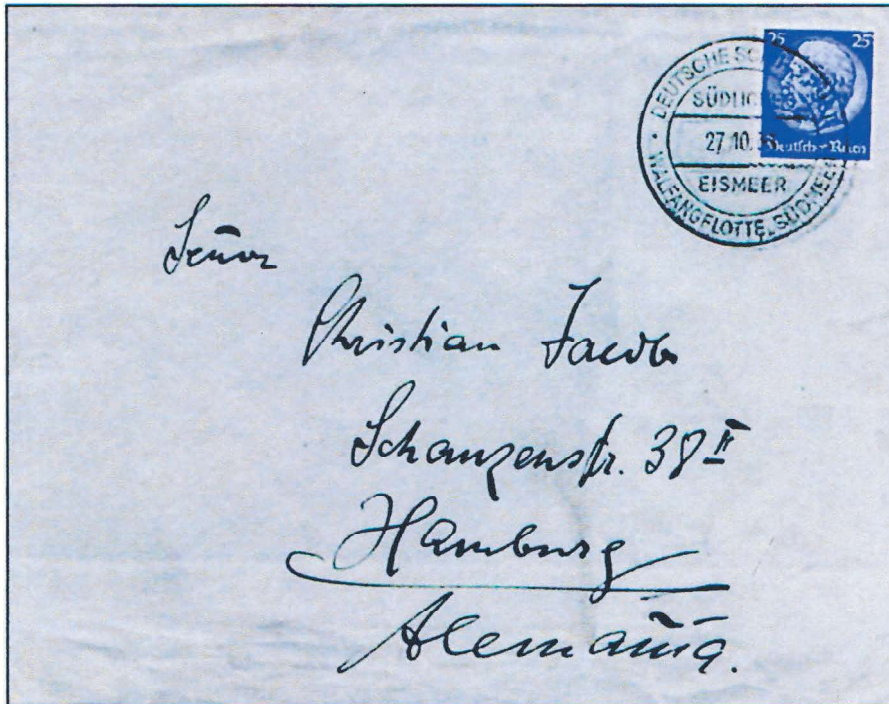 25 25
Deutsches Reich
DEUTSCHE
27.10.
EISMEER
WALFANGFLOTTE, SÜDMEER
Señor
Christian Jacob
Schanzenstr. 38 II
Hamburg
Alemania.